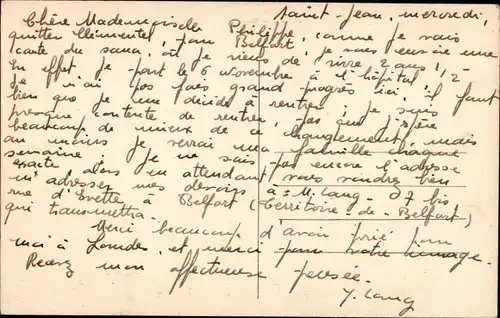 Saint-Jean, mercredi,
Chère Mademoiselle Philippe, comme je vais
quitter Clémentel, pour Belfort, je vous envoie une
carte du sana, où je viens de vivre 2 ans 1/2-
En effet je part le 6 novembre à l'hôpital
je n'ai pas fais grand progrès ici; il faut
bien que je me décide à rentrer; je suis
presque contente de rentrer, pas que j'espère
beaucoup de mieux de ce changement, mais
au moins je verrai ma famille chaque
semaine. Je ne sais pas encore l'adresse
exacte alors en attendant vous voudrez bien
m'adresser mes devoirs à: M. Lang- 27 bis
rue d'Evette à Belfort (Territoire-de-Belfort)
qui transmettra.
Merci beaucoup d'avoir prié pour
moi à Lourdes, et merci pour votre image.
Recevez mon affectueuse pensée.
Y. Lang